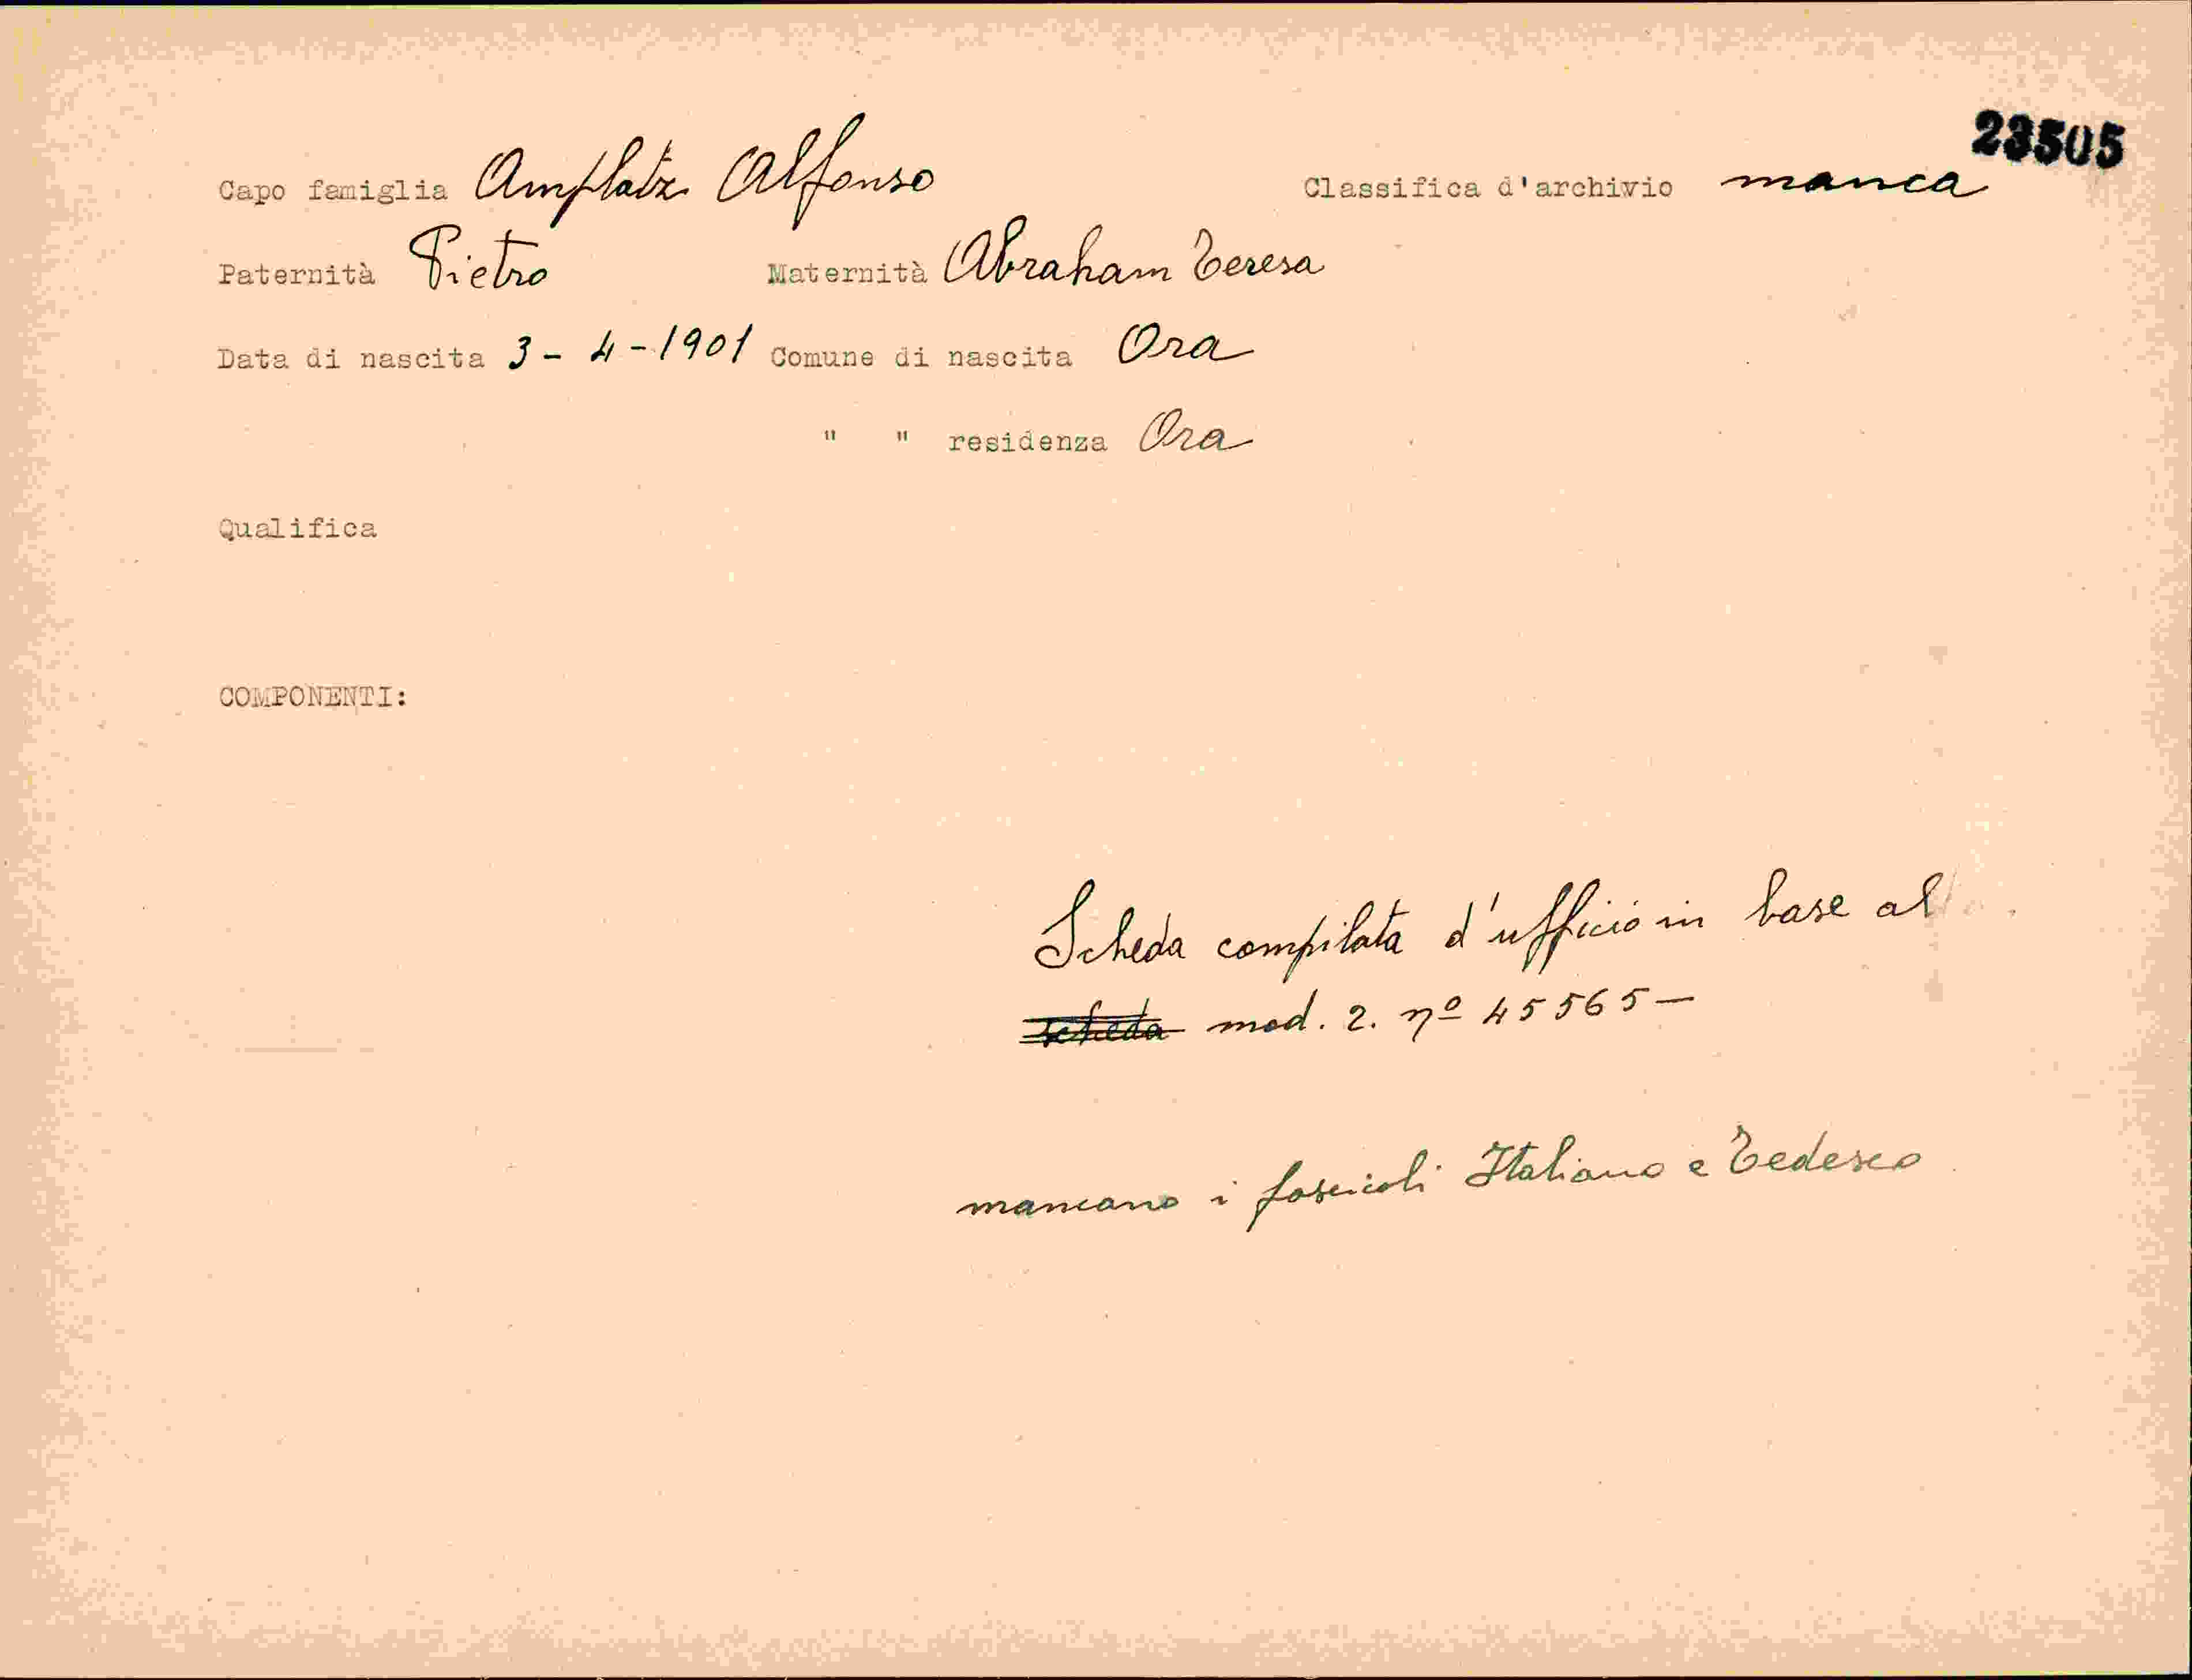 23505
Capo famiglia Amplatz Alfonso Classifica d'archivio manca
Paternità Pietro Maternità Abraham Teresa
Data di nascita 3-4-1901 Comune di nascita Ora
" " residenza Ora
Qualifica
COMPONENTI:
Scheda compilata d'ufficio in base al
scheda mod. 2. nº 45565—
mancano i fascicoli Italiano e Tedesco